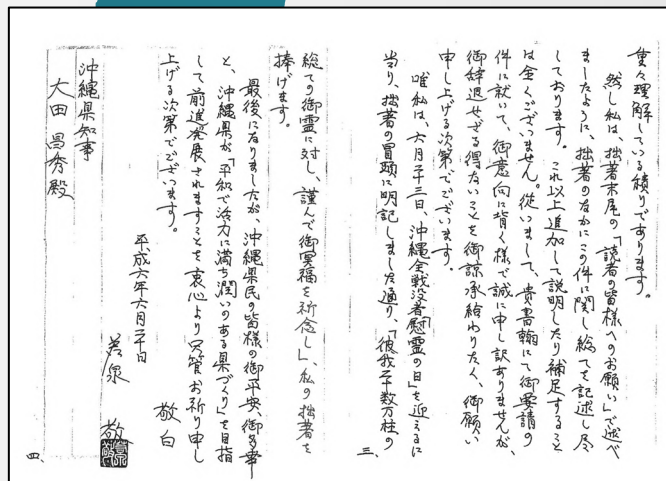 重々理解している積りであります。
然し私は、拙著末尾の「読者の皆様へのお願い」で述べ
ましたように、拙著のなかにこの件に関し総てを記述し尽
しております。これ以上追加して説明したり補足すること
は全くございません。従いまして、貴書翰にて御要請の
件に就いて、御意向に背く様で誠に申し訳ありませんが、
御辞退せざる得ないことを御諒承給わりたく、御願い
申し上げる次第でございます。
唯私は、六月二十三日、沖縄全戦没者「慰霊の日」を迎えるに
当り、拙著の冒頭に明記しました通り、「彼我二十数万柱の
三、
総ての御霊に対し、謹んで御冥福を祈念し」、私の拙著を
捧げます。
最後になりましたが、沖縄県民の皆様の御平安、御多幸
と、沖縄県が「平和で活力に満ち潤いのある県づくり」を目指
して前進発展されますことを衷心より只管お祈り申し
上げる次第でございます。
敬白
平成六年六月二十日
若泉 敬
沖縄県知事
大田昌秀殿
四、